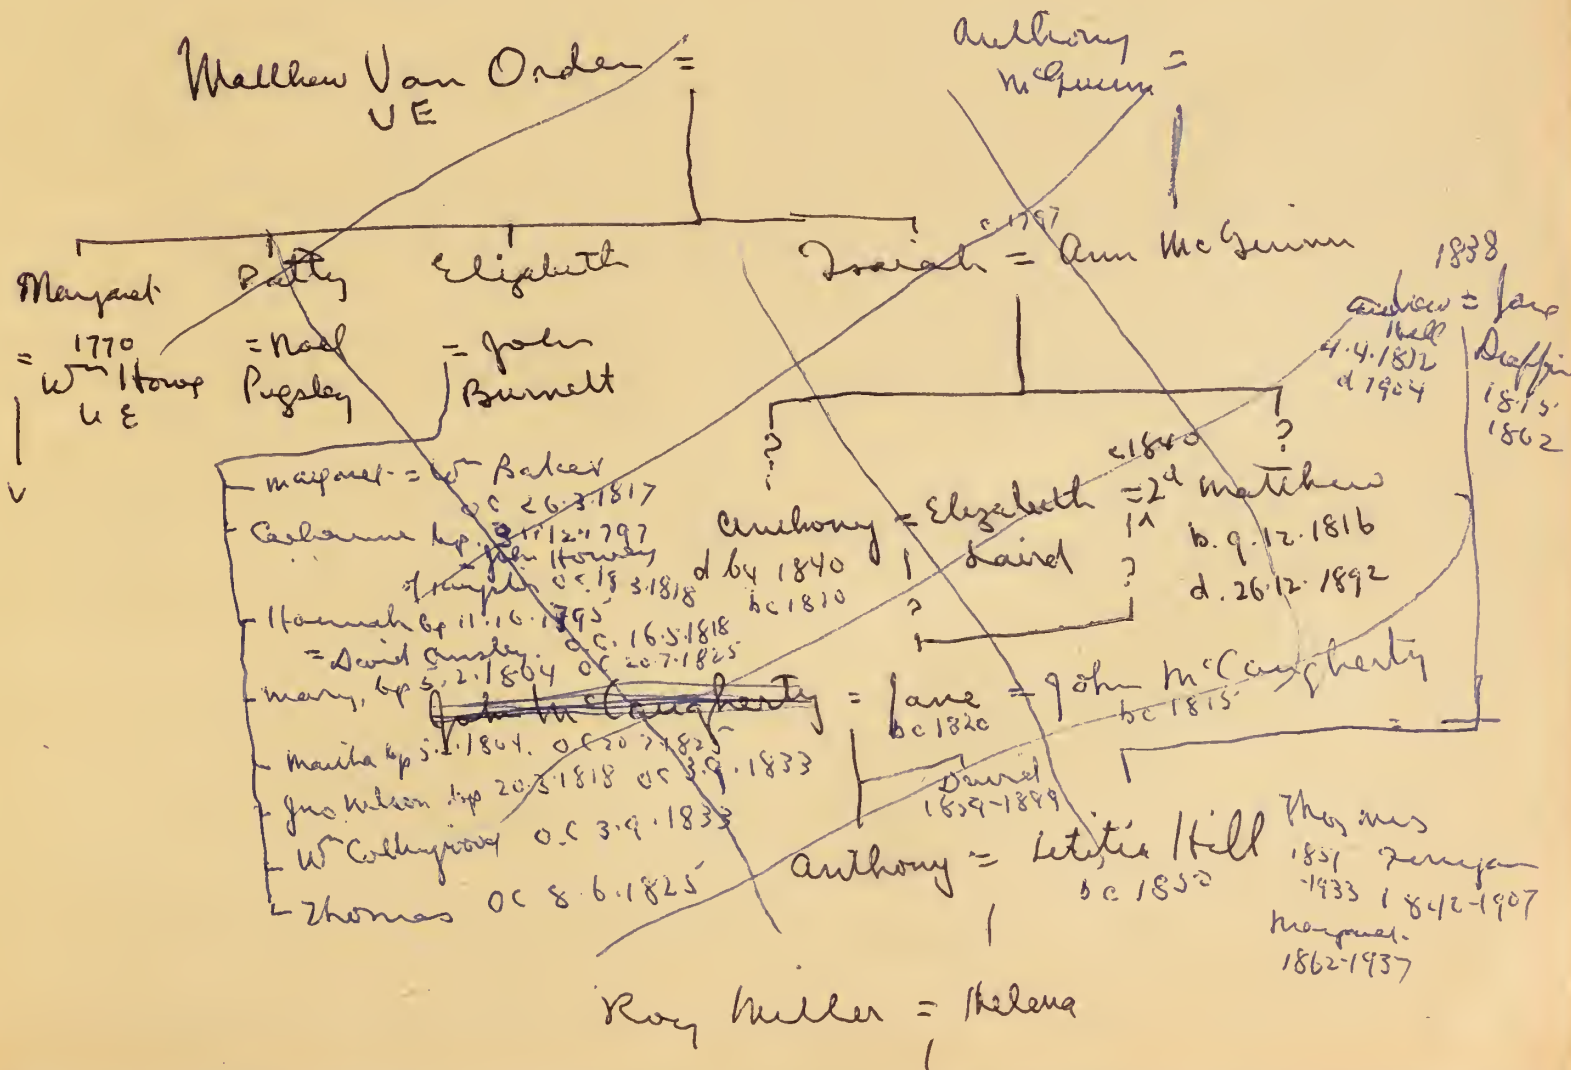 Matthew Van Orden =
UE
Anthony
McGuinn =
c 1797
Margaret
1770
= Wm Howe
UE
Patty
= Noel
Pugsley
Elizabeth
= John
Burnett
Isaiah = Ann McGuinn
1838
Andrew = Jane
Hill
4.4.1812
d 1904
1815
1862
Margaret = Wm Baker
OC 26.3.1817
Catharine bp. 12.1797
= John
of OC 18 3.1818
Hannah bp 11.10.1795
= David OC. 16.5.1818
Mary, bp 5.2.1804 OC 20.7.1825
Martha bp 5.2.1804. OC 20 7.1825
Jno Nelson bp 20.5.1818 OC 3.9.1833
Wm OC 3.9.1833
Thomas OC 8.6.1825
?
?
c 1840
Anthony = Elizabeth = 2d Matthew
Laird
d by 1840
bc 1810
b. 9.12.1816
d. 26.12.1892
?
?
John McCaugherty = Jane = John McCaugherty
bc 1820
bc 1815
David
1859-1899
Anthony = Letitia Hill
bc 1850
Thos
1851
-1933
1842-1907
Margaret
1862-1937
Roy Miller = Helena